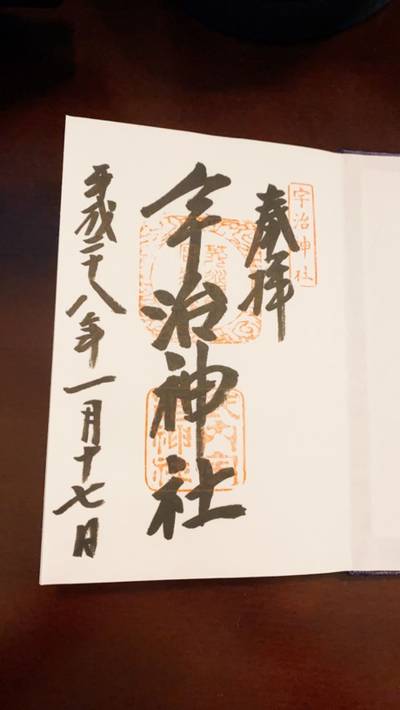 宇治神社
奉拝
宇治神社
平成二十八年一月十七日